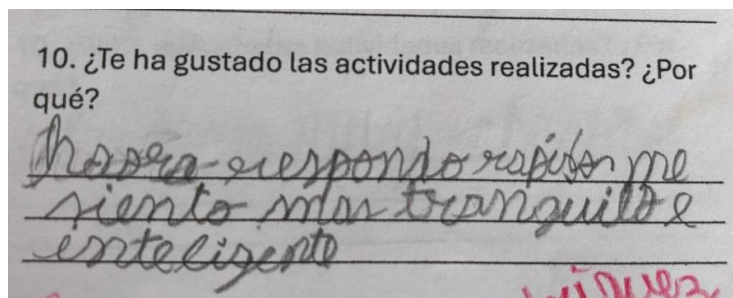 10. ¿Te ha gustado las actividades realizadas? ¿Por
qué?
haora respondo rapido me
siento mas tranquilo e
enteligente